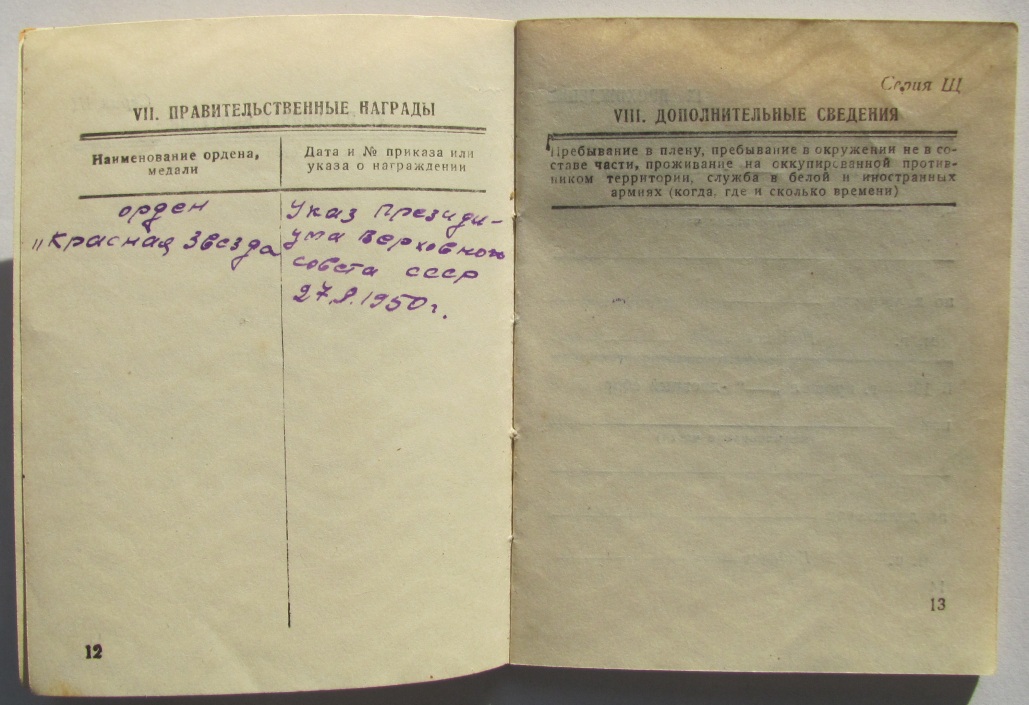 VII. ПРАВИТЕЛЬСТВЕННЫЕ НАГРАДЫ
Наименование ордена,
медали
Дата и № приказа или
указа о награждении
орден
„Красная Звезда
Указ Президи-
ума Верховного
совета СССР
1950г.
12
Серия Щ
VIII. ДОПОЛНИТЕЛЬНЫЕ СВЕДЕНИЯ
Пребывание в плену, пребывание в окружении не в со-
ставе части, проживание на оккупированной против-
ником территории, служба в белой и иностранных
армиях (когда, где и сколько времени)
13